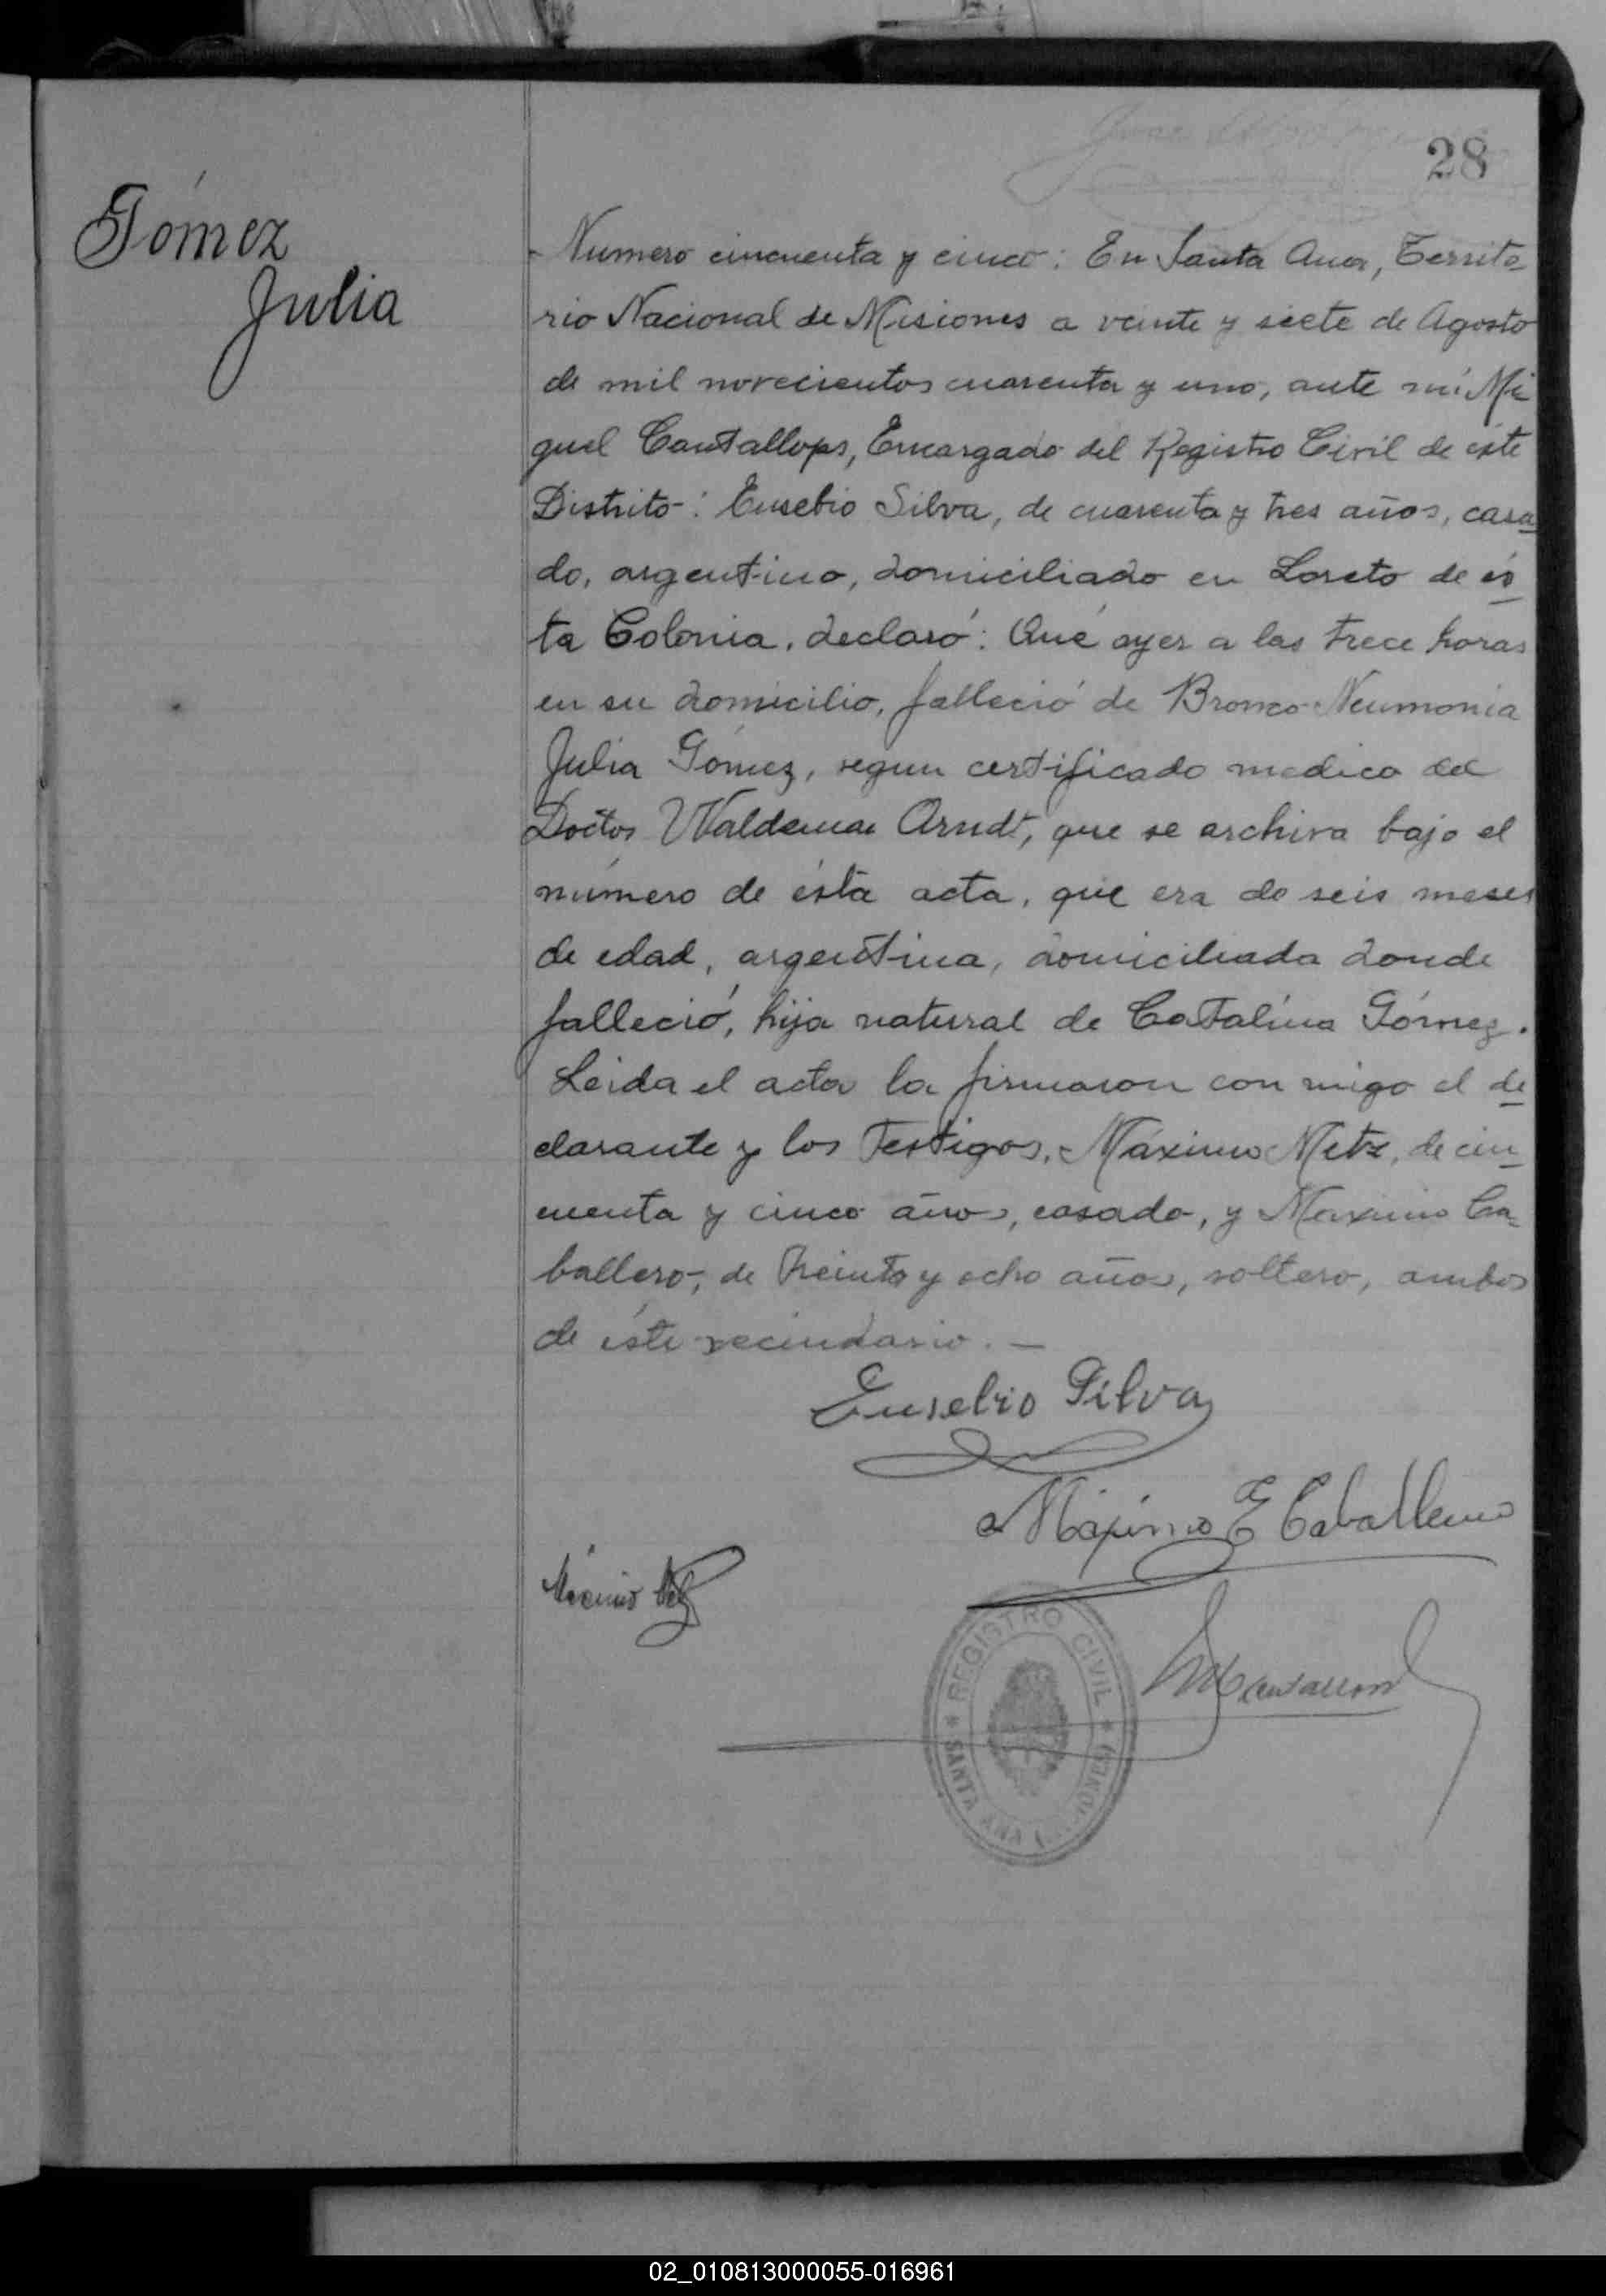 28
Gómez
Julia
Numero cincuenta y cinco: En Santa Ana, Territo-
rio Nacional de Misiones a veinte y siete de Agosto
de mil novecientos cuarenta y uno, ante mí Mi
guel Cantallops, Encargado del Registro Civil de éste
Distrito: Eusebio Silva, de cuarenta y tres años, casa
do, argentino, domiciliado en Loreto de és
ta Colonia, declaró: Qué ayer a las trece horas
en su domicilio, falleció de Bronco-Neumonia
Julia Gómez, segun certificado medico del
Doctor Waldemar Arndt, que se archiva bajo el
número de ésta acta, que era de seis meses
de edad, argentina, domiciliada donde
falleció, hija natural de Catalina Gómez.
Leida el acta la firmaron con migo el de
clarante y los Testigos, Máximo Metz, de cin
cuenta y cinco años, casado, y Maximo Ca-
ballero, de treinta y ocho años, soltero, ambos
de éste vecindario. —
Eusebio Silva
Máximo E Caballero
REGISTRO CIVIL
* SANTA ANA (MISIONES) *
02_010813000055-016961